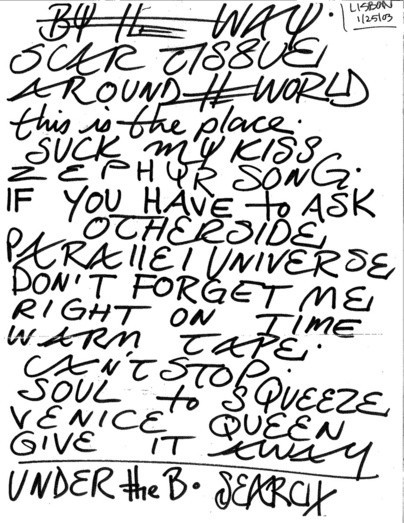 LISBON
1/25/03
BY THE WAY.
SCAR TISSUE
AROUND THE WORLD
this is the place.
SUCK MY KISS
ZEPHYR SONG.
IF YOU HAVE to ASK
OTHERSIDE
PARAllEl UNIVERSE
DON'T FORGET ME
RIGHT ON TIME
WARM TAPE.
CAN'T STOP.
SOUL to SQUEEZE
VENICE QUEEN
GIVE IT AWAY
UNDER the B. SEARCH